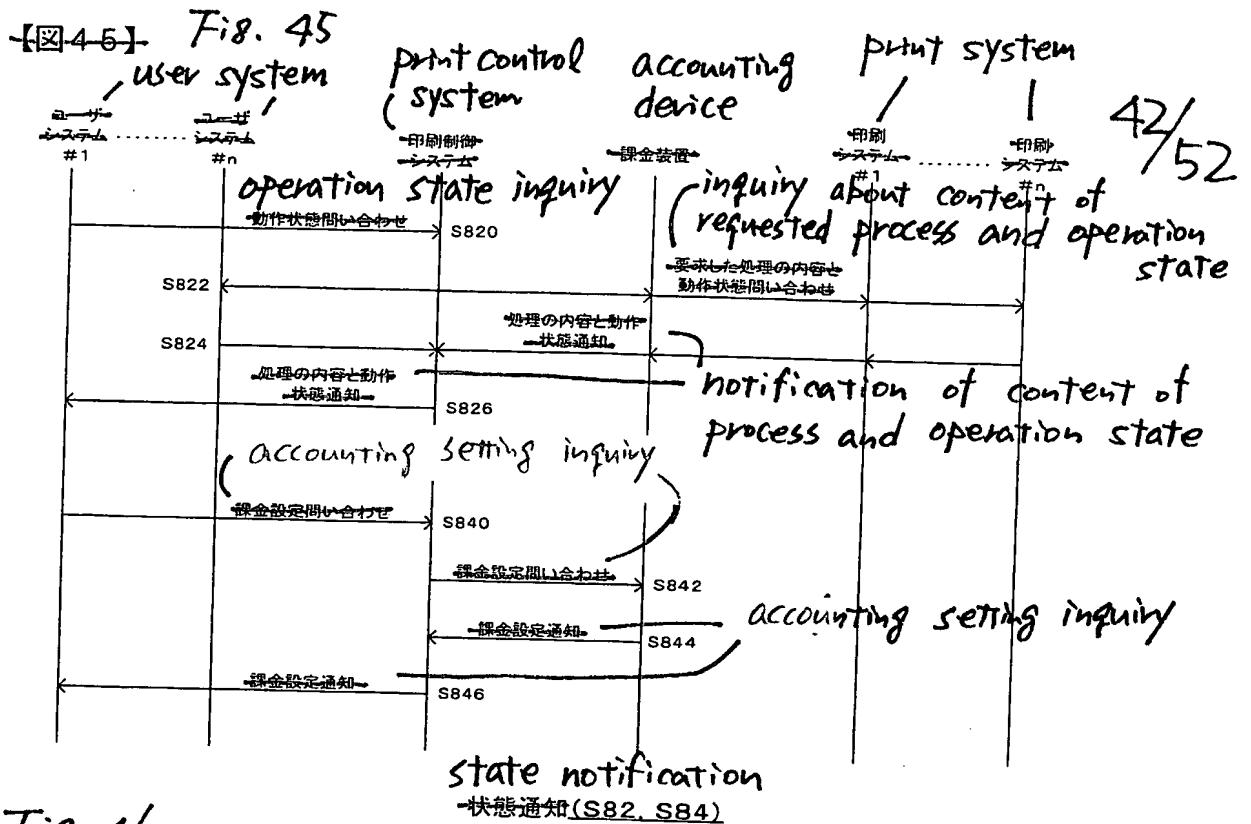 【図45】 Fig. 45
user system
print control system
accounting device
print system
42/52
ユーザシステム #1 ‥‥‥ ユーザシステム #n
印刷制御システム
課金装置
印刷システム #1 ‥‥‥ 印刷システム #n
operation state inquiry
動作状態問い合わせ S820
inquiry about content of
requested process and operation
state
要求した処理の内容と
動作状態問い合わせ
S822
処理の内容と動作
状態通知
S824
処理の内容と動作
状態通知
S826
notification of content of
process and operation state
accounting setting inquiry
課金設定問い合わせ S840
課金設定問い合わせ S842
accounting setting inquiry
課金設定通知 S844
課金設定通知 S846
state notification
状態通知(S82, S84)